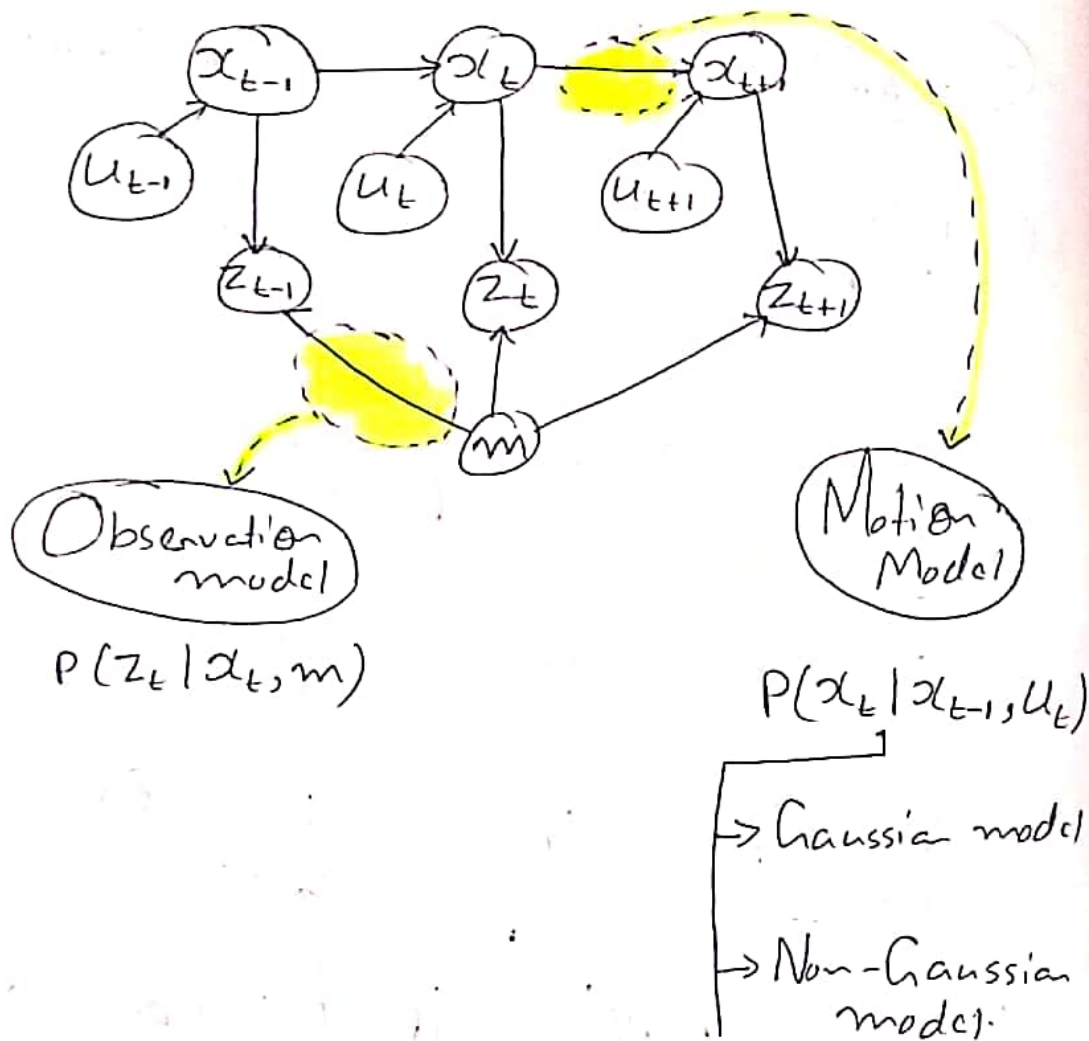 x_{t-1} x_t x_{t+1}
u_{t-1} u_t u_{t+1}
z_{t-1} z_t z_{t+1}
m
Observation
model
Motion
Model
P(z_t | x_t, m)
P(x_t | x_{t-1}, u_t)
→ Gaussian model
→ Non-Gaussian
model.